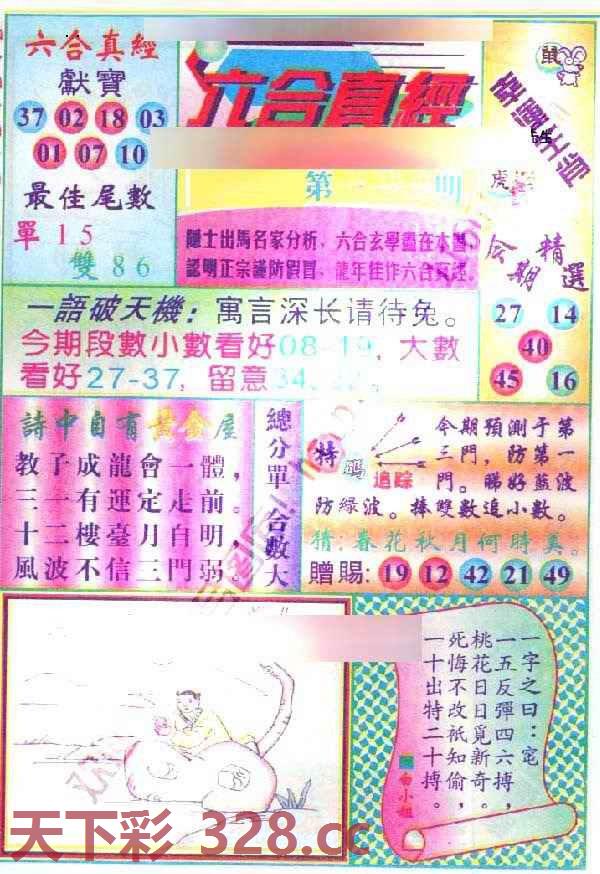 六合真經
獻寶
37 02 18 03
01 07 10
最佳尾數
單15
雙86
六合真經
第 期
隱士出馬名家分析，六合玄學盡在本圖，
認明正宗謹防假冒，龍年佳作六合真經。
鼠
幸運生肖
虎
今期精選
27 14
40
45 16
一語破天機：寓言深长请待兔。
今期段數小數看好08-19，大數
看好27-37，留意
詩中自有黃金屋
教子成龍會一體，
三一有運定走前。
十二樓臺月自明，
風波不信三門弱。
總分單 合數大
特碼
追踪
今期預測于第
三門，防第一
門。睇好蓝波
防綠波。捧雙數追小數。
猜：春花秋月何時
贈賜：19 12 42 21 49
一字之曰：宅
一五反彈四六搏，
桃花日日覓新奇。
死悔不改祇知偷，
一十出特二十搏。
白小姐
天下彩 328.cc